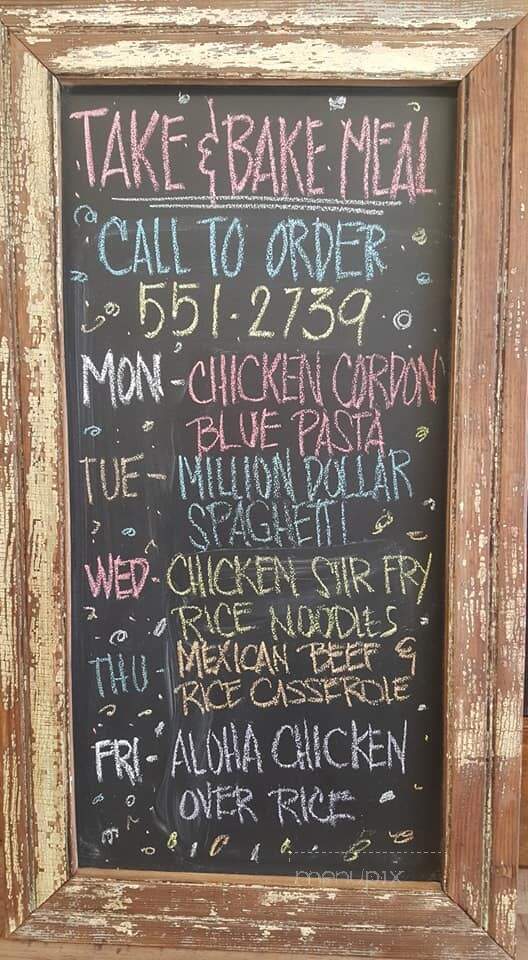 TAKE & BAKE MEAL
CALL TO ORDER
551-2739
MON - CHICKEN CORDON
BLUE PASTA
TUE - MILLION DOLLAR
SPAGHETTI
WED - CHICKEN STIR FRY
RICE NOODLES
THU - MEXICAN BEEF &
RICE CASSEROLE
FRI - ALOHA CHICKEN
OVER RICE
menupix